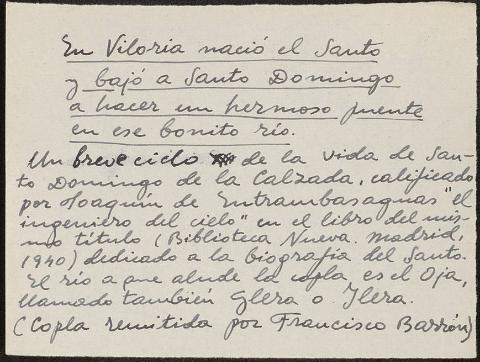 En Viloria nació el Santo
y bajó a Santo Domingo
a hacer un hermoso puente
en ese bonito río.
Un breve ciclo de la vida de San-
to Domingo de la Calzada, calificado
por Joaquín de Entrambasaguas "el
ingeniero del cielo" en el libro del mis-
mo título (Biblioteca Nueva. Madrid,
1940) dedicado a la biografía del Santo.
El río a que alude la copla es el Oja,
llamado también Glera o Ilera.
(Copla remitida por Francisco Barrón)